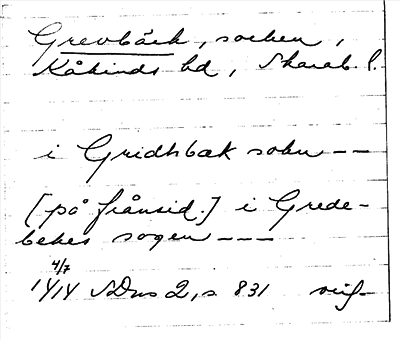 Grevbäck, socken,
Kåkinds hd, Skarab. l.
i Gridhbæk sokn --
[på frånsid.] i Grede-
bekes sogen ---
4/7
1414 SDns 2, s 831